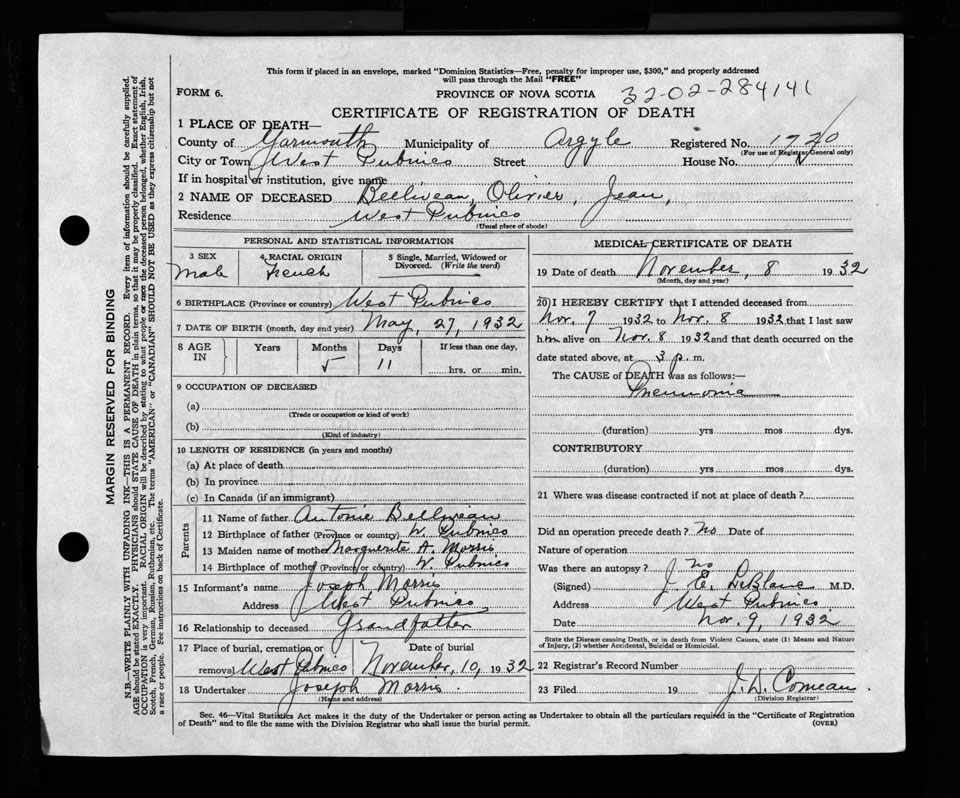 This form if placed in an envelope, marked "Dominion Statistics—Free, penalty for improper use, $300," and properly addressed
will pass through the Mail "FREE"
FORM 6. PROVINCE OF NOVA SCOTIA 32-02-284141
CERTIFICATE OF REGISTRATION OF DEATH
1 PLACE OF DEATH—
County of Yarmouth Municipality of Argyle Registered No. 1720
(For use of Registrar General only)
City or Town West Pubnico Street House No.
If in hospital or institution, give name
2 NAME OF DECEASED Belliveau, Olivier, Jean,
Residence West Pubnico
(Usual place of abode)
PERSONAL AND STATISTICAL INFORMATION
3 SEX 4 RACIAL ORIGIN 5 Single, Married, Widowed or
Divorced. (Write the word)
Male French
6 BIRTHPLACE (Province or country) West Pubnico
7 DATE OF BIRTH (month, day and year) May, 27, 1932
8 AGE IN Years Months Days If less than one day,
5 11 hrs. or min.
9 OCCUPATION OF DECEASED
(a)
(Trade or occupation or kind of work)
(b)
(Kind of industry)
10 LENGTH OF RESIDENCE (in years and months)
(a) At place of death
(b) In province
(c) In Canada (if an immigrant)
Parents
11 Name of father Antonie Belliveau
12 Birthplace of father (Province or country) W. Pubnico
13 Maiden name of mother Marguerite A. Morris
14 Birthplace of mother (Province or country) W. Pubnico
15 Informant's name Joseph Morris
Address West Pubnico
16 Relationship to deceased Grandfather
17 Place of burial, cremation or Date of burial
removal West Pubnico November, 10, 1932
18 Undertaker Joseph Morris.
(Name and address)
MEDICAL CERTIFICATE OF DEATH
19 Date of death November, 8 1932
(Month, day and year)
20 I HEREBY CERTIFY that I attended deceased from
Nov. 7 1932 to Nov. 8 1932 that I last saw
him alive on Nov. 8 1932 and that death occurred on the
date stated above, at 3 p. m.
The CAUSE of DEATH was as follows:—
Pneumonia
(duration) yrs mos dys.
CONTRIBUTORY
(duration) yrs mos dys.
21 Where was disease contracted if not at place of death?
Did an operation precede death? No Date of
Nature of operation
Was there an autopsy? No
(Signed) J. E. LeBlanc M.D.
Address West Pubnico.
Date Nov. 9, 1932
State the Disease causing Death, or in death from Violent Causes, state (1) Means and Nature
of Injury, (2) whether Accidental, Suicidal or Homicidal.
22 Registrar's Record Number
23 Filed 19 J. D. Comeau.
(Division Registrar)
Sec. 46—Vital Statistics Act makes it the duty of the Undertaker or person acting as Undertaker to obtain all the particulars required in the "Certificate of Registration
of Death" and to file the same with the Division Registrar who shall issue the burial permit. (OVER)
MARGIN RESERVED FOR BINDING
N.B.—WRITE PLAINLY WITH UNFADING INK—THIS IS A PERMANENT RECORD. Every item of information should be carefully supplied.
AGE should be stated EXACTLY. PHYSICIANS should STATE CAUSE OF DEATH in plain terms, so that it may be properly classified. Exact statement of
OCCUPATION is very important. RACIAL ORIGIN will be described by stating to what people or race the deceased person belonged, whether English, Irish,
Scotch, French, German, Russian, Ruthenian, etc. The terms "AMERICAN" or "CANADIAN" SHOULD NOT BE USED as they express citizenship but not
a race or people. See instructions on back of Certificate.